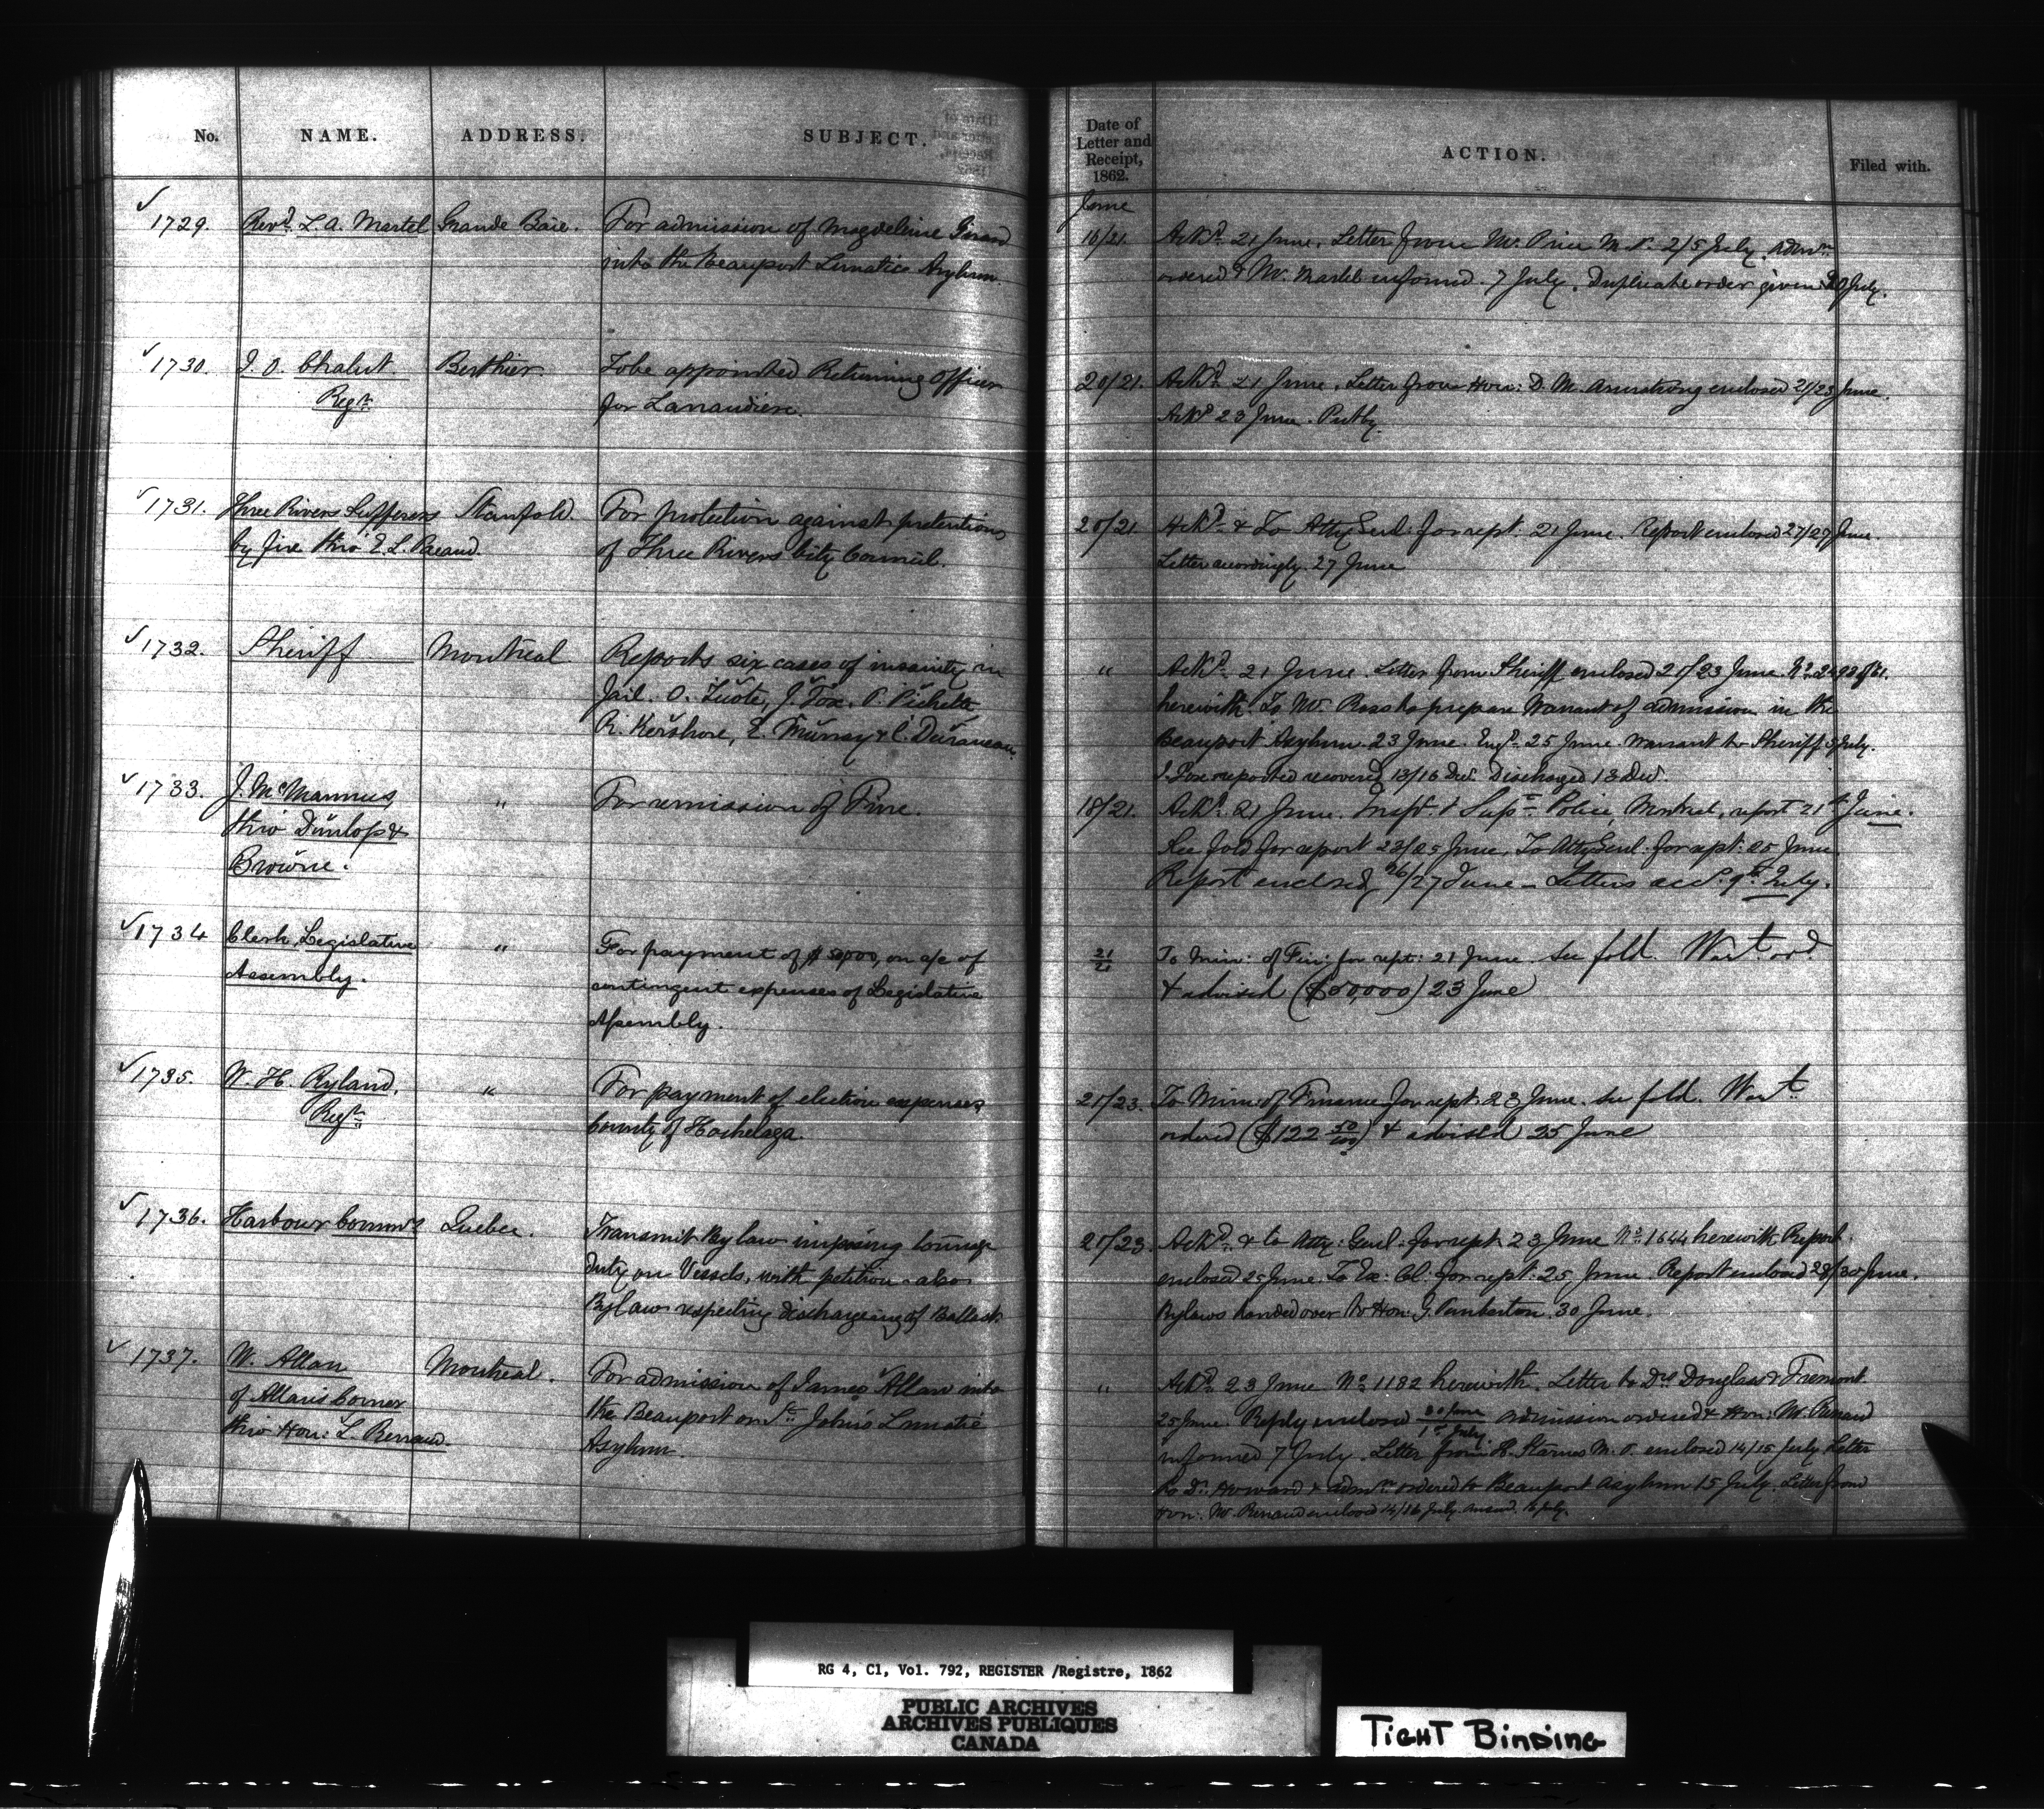 No. NAME. ADDRESS. SUBJECT.
1729. Revd. L. A. Martel Grande Baie. For admission of Magdeleine Girard
into the Beauport Lunatic Asylum.
1730. J. O. Chalut. Berthier. To be appointed Returning Officer
Regr. for Lanaudiere.
1731. Three Rivers Sufferers Stanfold. For protection against pretentions
by fire thro' E. L. Pacaud. of Three Rivers City Council.
1732. Sheriff Montreal. Reports six cases of insanity in
Jail. O. Turote, J. Fox. P. Pichette
R. Kershore, E. Murray & C. Duranceau
1733. J. McMannus " For remission of Fine.
thro' Dunlop &
Browne.
1734 Clerk, Legislative " For payment of $50,000, on a/c of
Assembly. contingent expenses of Legislative
Assembly.
1735. W. H. Ryland, " For payment of election expenses
Regr. County of Hochelaga.
1736. Harbour Commrs. Quebec. Transmit By law imposing tonnage
duty on Vessels, with petition - also
By law respecting discharging of Ballast.
1737. W. Allan Montreal. For admission of James Allan into
of Allan's Corner the Beauport or St. John's Lunatic
thro' Hon: L. Renaud. Asylum.
Date of
Letter and
Receipt,
1862. ACTION. Filed with.
June
16/21. Ackd. 21 June. Letter from Mr. Price M. P. 2/5 July. Admn.
ordered & Mr. Martel informed. 7 July. Duplicate order given 30 July.
20/21. Ackd. 21 June. Letter from Hon: D. M. Armstrong enclosed 21/23 June.
Ackd. 23 June. Put by.
20/21. Ackd. & To Atty Genl. for rept. 21 June. Report enclosed 27/27 June.
Letter accordingly. 27 June
" Ackd. 21 June. Letter from Sheriff enclosed 21/23 June. No. of 61.
herewith. To Mr. Ross to prepare Warrant of admission in the
Beauport Asylum. 23 June. Engd. 25 June. Warrant to Sheriff 3 July.
J. Fox reported recovered 13/16 Dec. Discharged 13 Dec.
18/21. Ackd. 21 June. Inspr. & Supt. Police, Montreal, report 21st June.
See fold for report 23/25 June. To Atty Genl. for rept: 25 June.
Report enclosed, 26/27 June - Letters acc. 9th. July.
21/21 To Min: of Fin: for rept: 21 June. See fold. Wart. ord
& advised ($50,000) 23 June
21/23. To Min: of Finance for rept. 23 June. See fold. Wart.
ordered ($122 50/100) & advised 25 June
21/23. Ackd. & to Atty: Genl. for rept. 23 June No. 1644 herewith. Report
enclosed 25 June. To Ex: Cl. for rept: 25 June. Report enclosed 28/30 June.
Bylaws handed over to Hon: G. Pemberton. 30 June.
" Ackd. 23 June No. 1182 herewith. Letter to Drs. Douglass & Fremont
25 June. Reply enclosed 30 June/1st July. Admission ordered & Hon: Mr. Renaud
informed 7 July. Letter from H. Starnes M. P. enclosed 14/15 July. Letter
to Dr. Howard & admn. ordered to Beauport Asylum 15 July. Letter from
Hon: Mr. Renaud enclosed 14/16 July. Answd. 16 July.
RG 4, C1, Vol. 792, REGISTER /Registre, 1862
PUBLIC ARCHIVES
ARCHIVES PUBLIQUES
CANADA
TIGHT BINDING